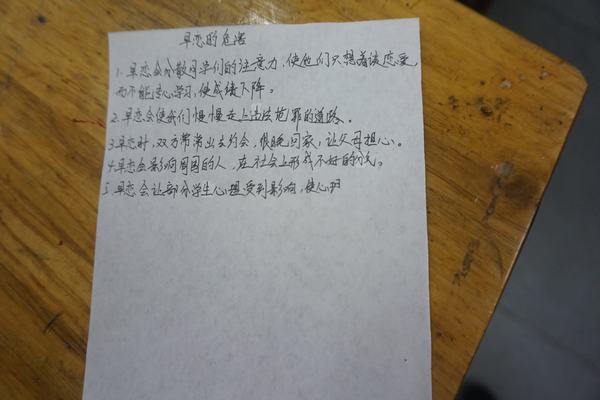 早恋的危害
1.早恋会分散同学们的注意力,使他们只想着谈恋爱,
而不能专心学习,使成绩下降。
2.早恋会使我们慢慢走上违法犯罪的道路。
3.早恋时,双方常常出去约会,很晚回家,让父母担心。
4.早恋会影响周围的人,在社会上形成不好的风气。
5.早恋会让部分学生心理受到影响,使心理